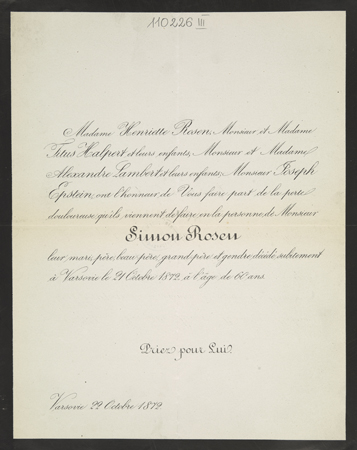 110226 III
Madame Henriette Rosen, Monsieur et Madame
Titus Halpert et leurs enfants, Monsieur et Madame
Alexandre Lambert et leurs enfants, Monsieur Joseph
Epstein, ont l'honneur de Vous faire part de la perte
douloureuse qu'ils viennent de faire en la personne de Monsieur
Simon Rosen
leur mari, père, beau-père, grand-père et gendre, décédé subitement
à Varsovie le 21 Octobre 1872, à l'âge de 60 ans.
Priez pour Lui.
Varsovie 22 Octobre 1872